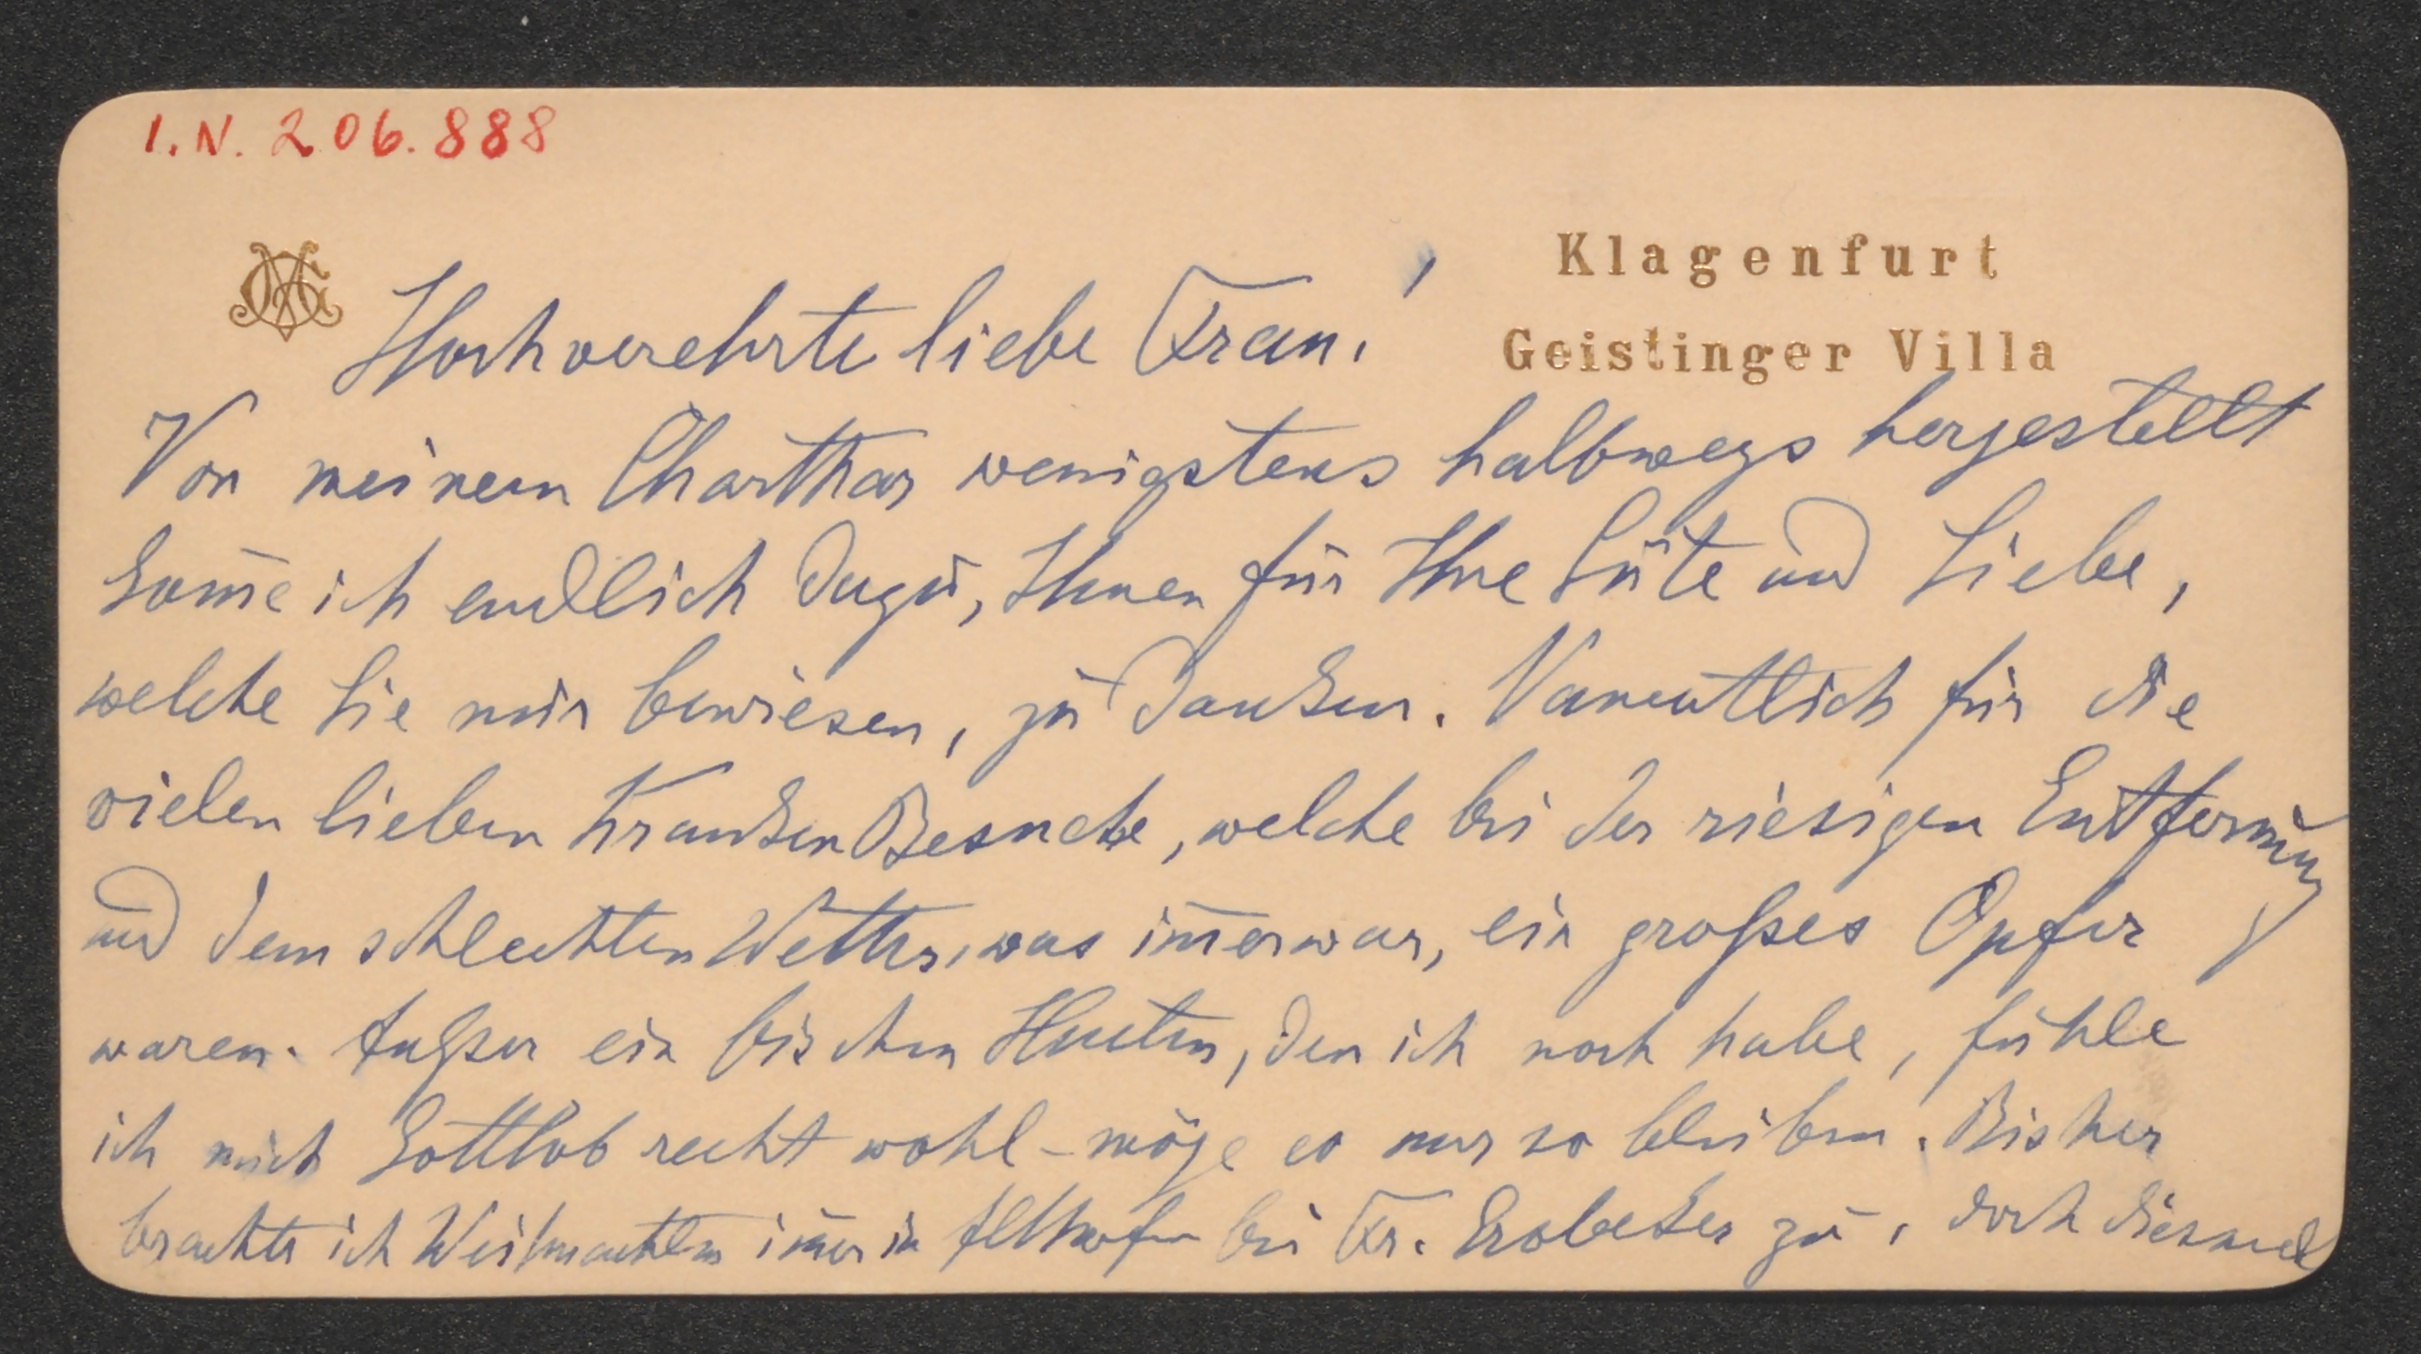 I.N. 206.888
Klagenfurt
Geistinger Villa
Hochverehrte liebe Frau!
Von meinem Charthar wenigstens halbwegs hergestellt
kom̅e ich endlich dazu, Ihnen für Ihre Güte und Liebe,
welche Sie mir bewiesen, zu danken. Namentlich für die
vielen lieben Kranken Besuche, welche bei der riesigen Entfernung
und dem schlechten Wetter, was im̅er war, ein großes Opfer
waren. Außer ein bischen Husten, den ich noch habe, fühle
ich mich Gottlob recht wohl – möge es nur so bleiben. Bisher
brachte ich Weihnachten im̅er in Althofen bei Fr. zu, doch diesmal